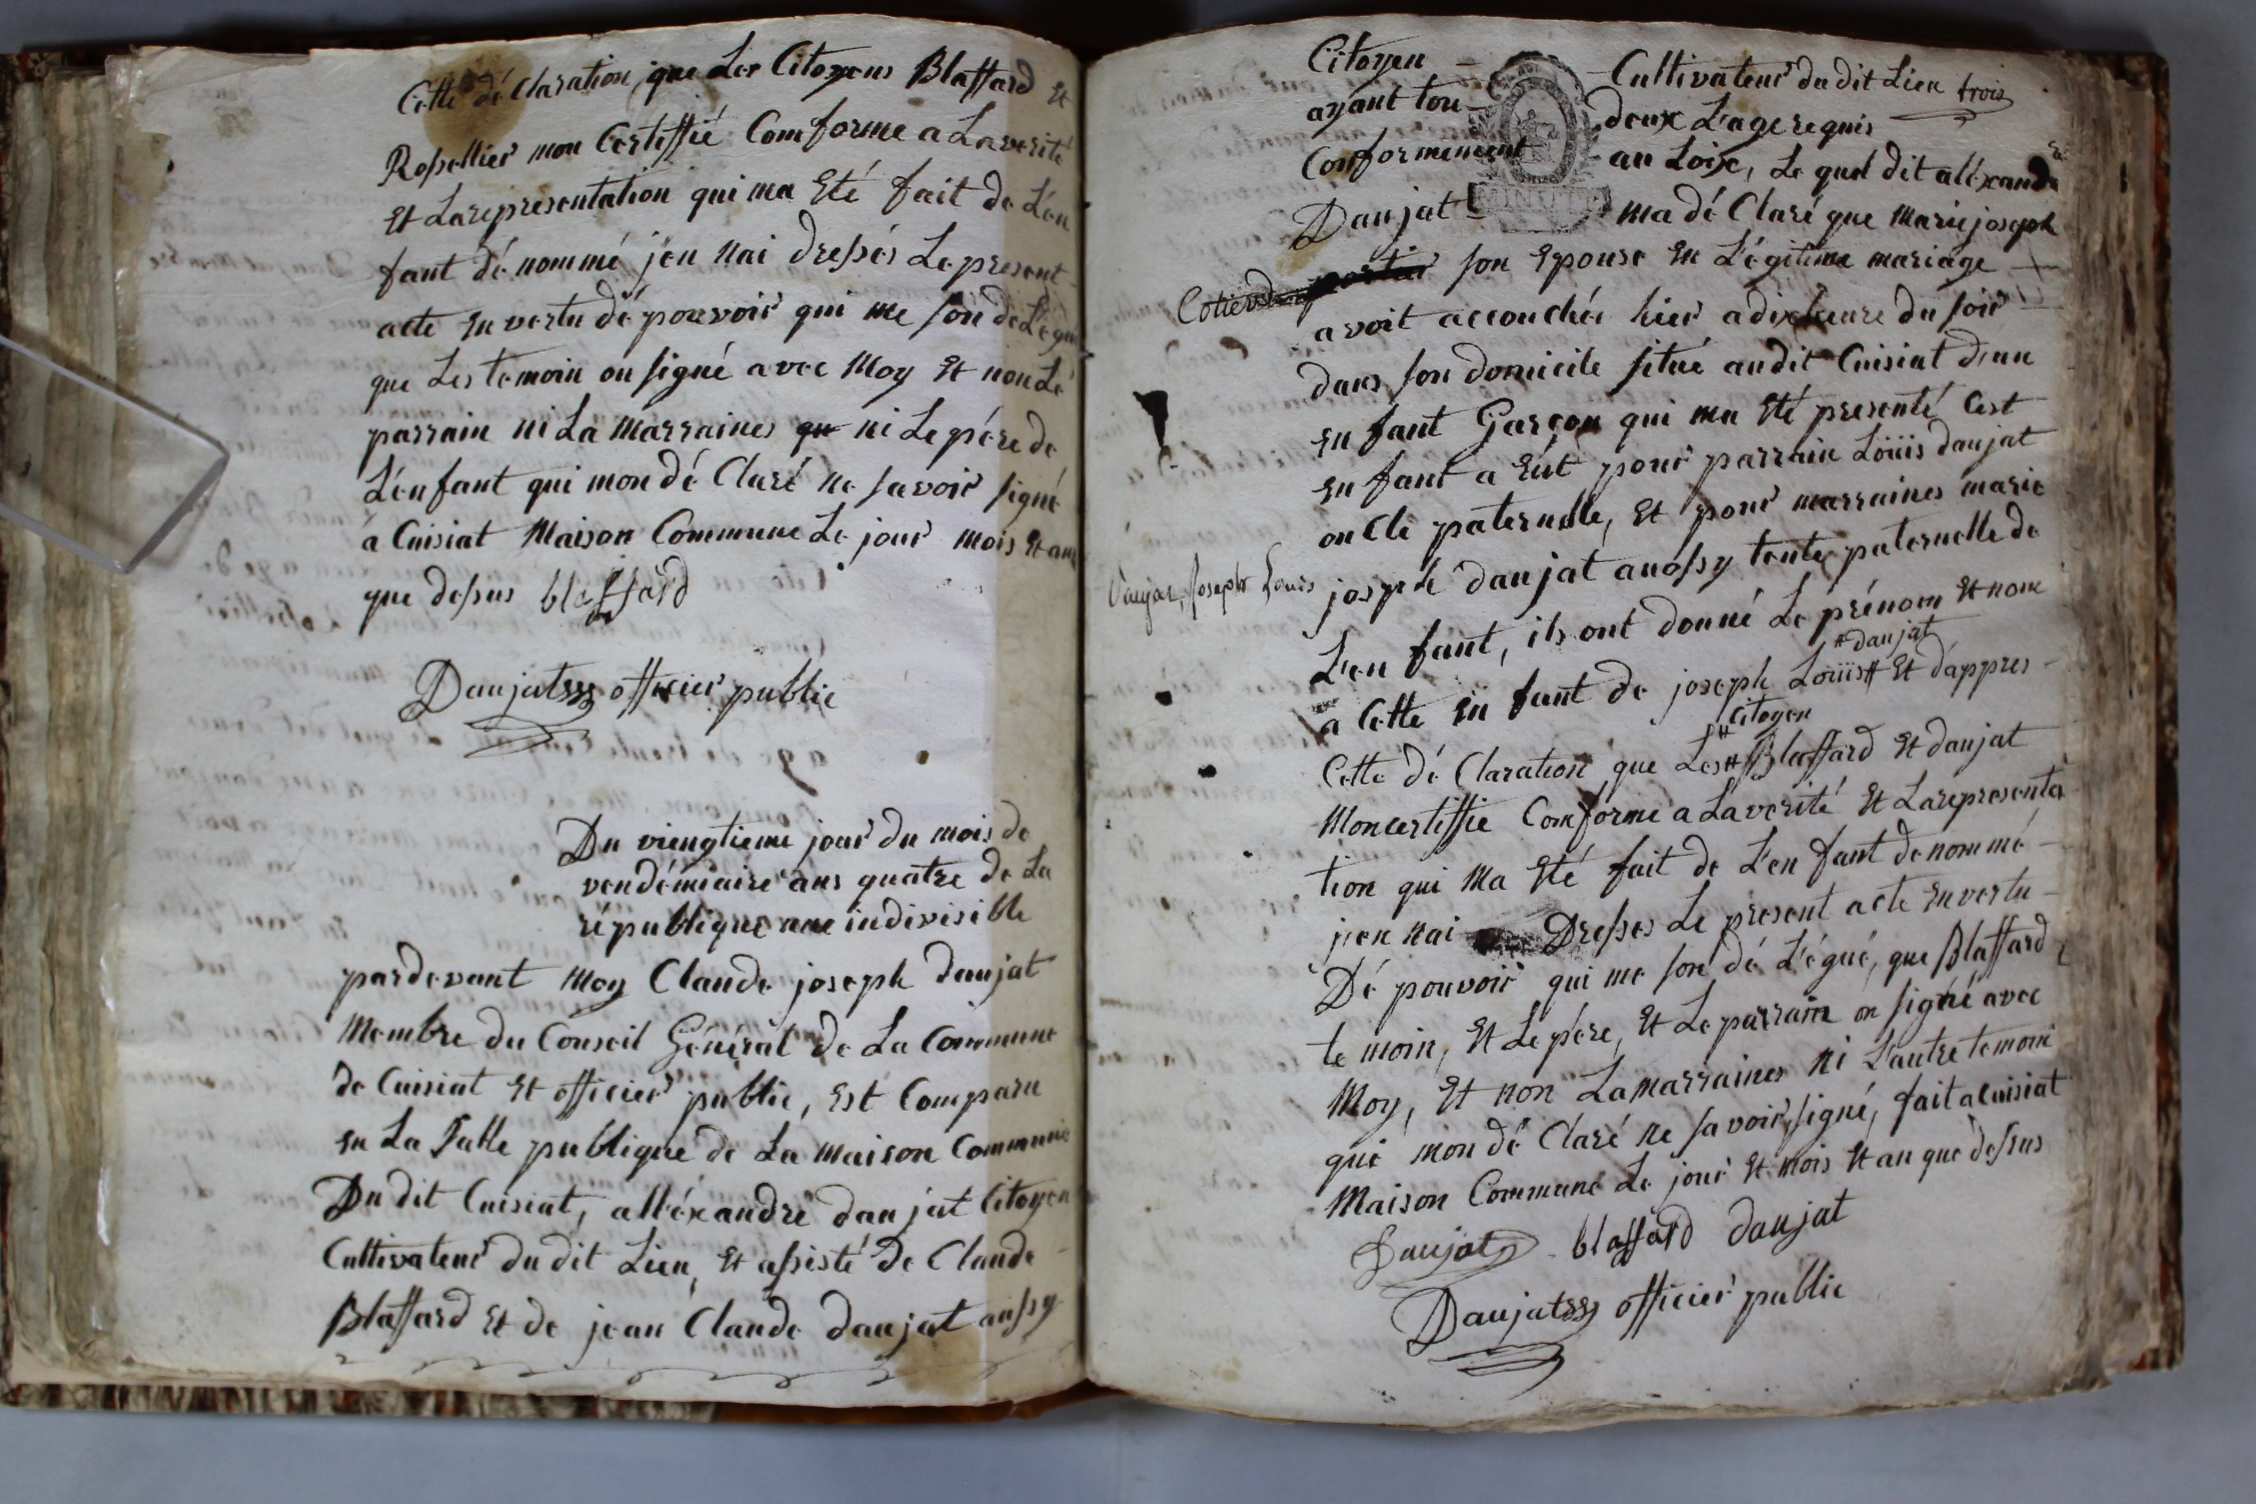 Cette dé Claration que Les Citoyens Blaffard Et
Rossellier mon Certiffié Comforme a La verité
Et La representation qui ma Eté fait de L'en
fant dé nommé jen nai dressés Le present
acte En vertu dé pouvoir qui me son de L'egu
que Les temoin on signé avec Moy Et non Le
parrain ni La Marraines ni Le pére de
L'enfant qui mon dé Claré ne savoir signé
a Cuisiat Maison Commune Le jour mois Et an
que dessus blaffard
Daujat officier public
Du viengtieme jour du mois de
vendémiaire ans quatre de La
république une indivisible
pardevant Moy Claude joseph daujat
Membre du Conseil Général de La Commune
de Cuisiat Et officier public, Est Comparu
En La Salle publique de La Maison Commune
Du dit Cuisiat, alléxandre daujat Citoyen
Cultivateur du dit Lieu, Et assisté de Claude
Blaffard Et de jean Claude daujat aussy
Citoyen - Cultivateur du dit Lieu trois
ayant tou - deux L'age requis
Conformement au Loix, Le quel dit aléxandre
Daujat - MINUTE ma dé Claré que Marie joseph
Cotier son Epouse En L'égitime mariage
avoit accouchée hier a dix heure du soir
dans son domicile situé au dit Cuisiat d'un
En fant Garçon qui ma Eté presenté Cest
En fant a Eüt pour parrain Loüis daujat
oncle paternelle, Et pour marraines marie
Daujat, Joseph Louis
joseph daujat aussy tente paternelle de
L'en fant, ils ont donné Le prénom Et nom
# daujat
a Cette En fant de joseph Loüis # Et d'appres
# Citoyen
Cette dé Claration que Les # Blaffard Et daujat
Mon certiffie Comforme a La verité Et La representa
tion qui Ma Eté fait de L'en fant de nommé
jen nai Dresses Le present acte En vertu
Dé pouvoir qui me son dé L'égué, que Blaffard
te moin, Et Le pére, Et Le parrain on signé avec
Moy, Et non La marraines ni L'autre temoin
qui mon dé Claré ne savoir signé, fait a Cuisiat
Maison Commune Le jour Et mois Et an que dessus
Daujat blaffard daujat
Daujat officier public